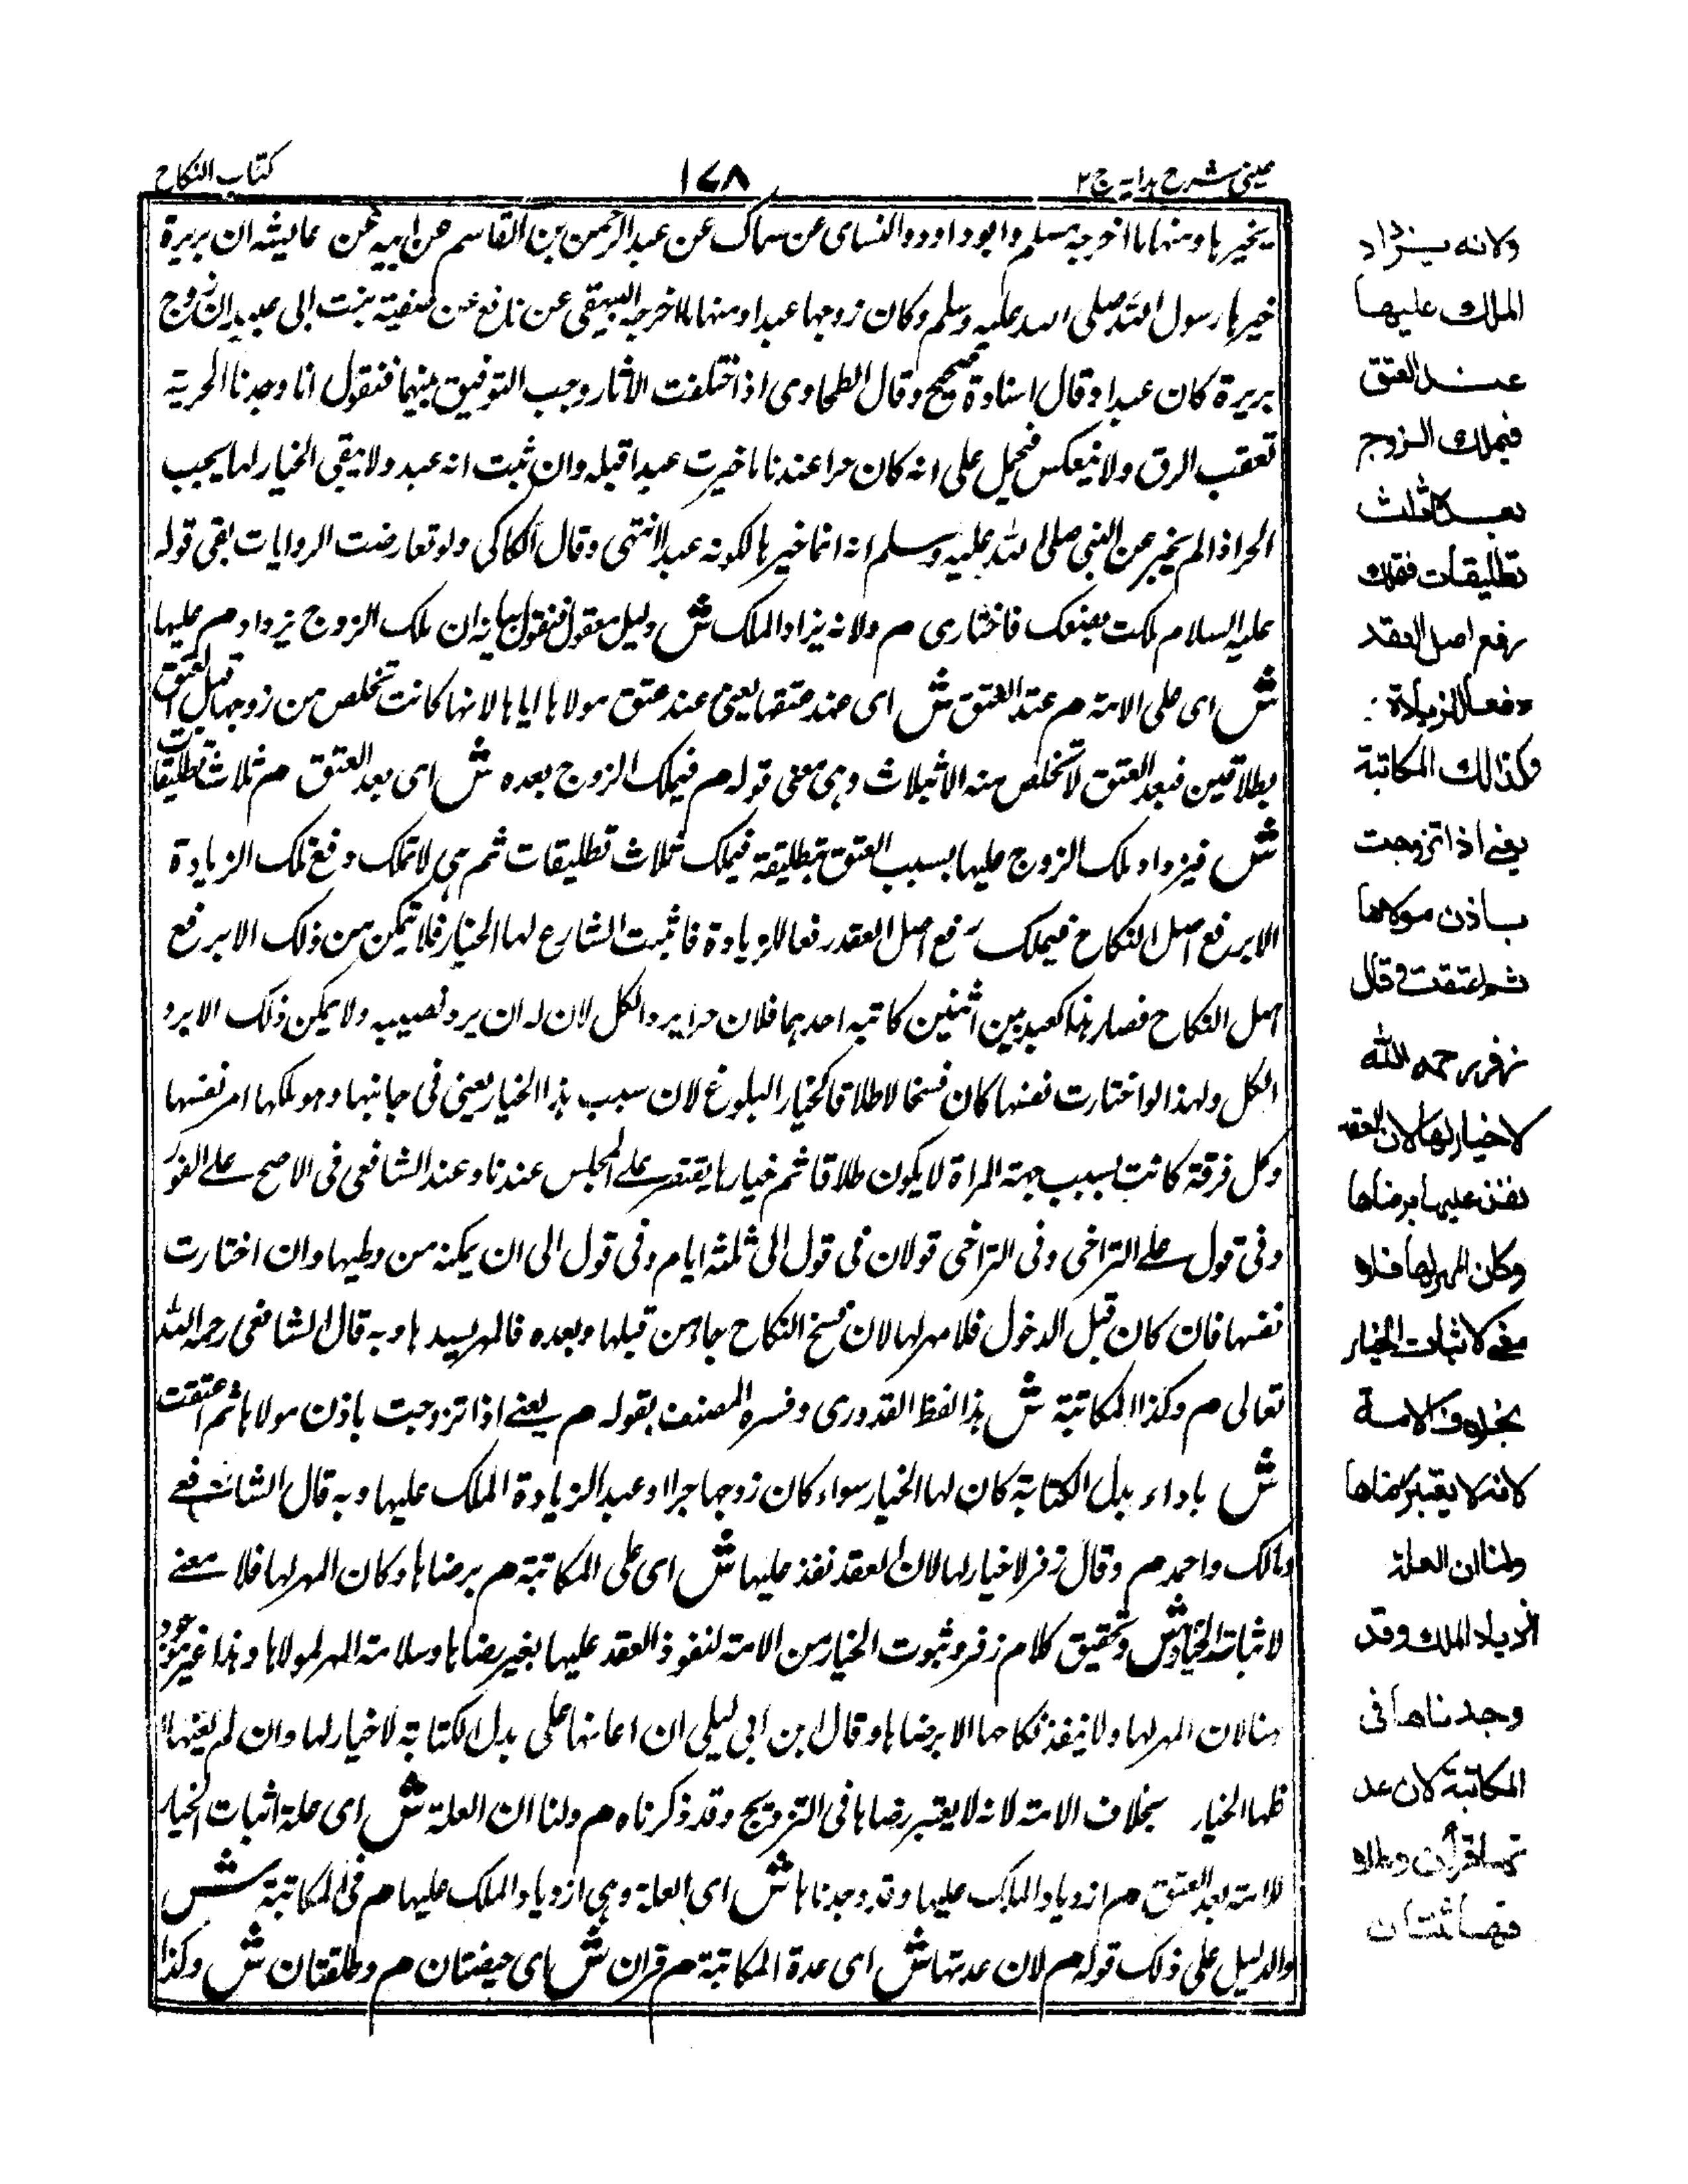 عینی شرح ہدایہ ج۲
۱۷۸
کتاب النکاح
یخیرہا ومنہا ما اخرجہ مسلم وابوداود والنسای عن سماک عن عبدالرحمن بن القاسم عن ابیہ عن عایشہ ان بریرة
خیرہا رسول اللہ صلی اللہ علیہ وسلم وکان زوجہا عبدا ومنہا ما اخرجہ البیہقی عن نافع عن صفیة بنت ابی عبید ان زوج
بریرة کان عبدا وقال اسنادہ صحیح وقال الطحاوی اذا اختلفت الاثار وجب التوفیق بینہما فنقول انا وجدنا الحریة
تعقب الرق ولا ینعکس فیحمل علی انہ کان حرا عندنا ما خیرت عبدا قبلہ وان ثبت انہ عبد ولا یبقی الخیار لہا یجب
الحر اذا لم یخبر عن النبی صلی اللہ علیہ وسلم انہ انما خیرہا لکونہ عبدا انتہی وقال الکاکی ولو تعارضت الروایات بقی قولہ
علیہ السلام ملکت بضعک فاختاری م ولانہ یزاد الملک ش دلیل معقول فنقول بیانہ ان ملک الزوج یزداد م علیہا
ش ای علی الامة م عند العتق ش ای عند عتقہا یعنی عند عتق مولاہا ایاہا لانہا کانت تخلص من زوجہا قبل العتق
بطلاقتین فبعد العتق لا تخلص منہ الا بثلاث وہی معنی قولہ م فیملک الزوج بعدہ ش ای بعد العتق م ثلاث تطلیقات
ش فیزداد ملک الزوج علیہا بسبب العتق بتطلیقة فیملک ثلاث تطلیقات ثم ہی لا تملک دفع تلک الزیادة
الا برفع اصل النکاح فیملک رفع اصل العقد رفعا للزیادة فاثبت الشارع لہا الخیار فلا تتمکن من ذلک الا برفع
اصل النکاح فصار ہذا کعبد بین اثنین کاتبہ احدہما فلان حرا یرد الکل لان لہ ان یرد نصیبہ ولا یمکن ذلک الا برد
الکل ولہذا لو اختارت نفسہا کان فسخا لا طلاقا کخیار البلوغ لان سبب ہذا الخیار یعنی فی جانبہا وہو ملکہا امر نفسہا
وکل فرقة کانت بسبب جہة المراة لا یکون طلاقا ثم خیارہا یقتصر علے المجلس عندنا وعند الشافعی فی الاصح علے الفور
وفی قول علے التراخی وفی التراخی قولان فی قول الی ثلثہ ایام وفی قول الی ان یمکنہ من وطیہا وان اختارت
نفسہا فان کان قبل الدخول فلا مہر لہا لان فسخ النکاح جاء من قبلہا وبعدہ فالمہر لسیدہا وبہ قال الشافعی رحمہ اللہ
تعالی م وکذا المکاتبة ش ہذا لفظ القدوری وفسرہ المصنف بقولہ م یعنے اذا تزوجت باذن مولاہا ثم اعتقت
ش باداء بدل الکتابة کان لہا الخیار سواء کان زوجہا حرا او عبدا لزیادة الملک علیہا وبہ قال الشافعے
ومالک واحمد م وقال زفر لا خیار لہا لان العقد نفذ علیہا ش ای علی المکاتبة م برضاہا وکان المہر لہا فلا معنے
لاثبات الخیار ش وتحقیق کلام زفر وثبوت الخیار من الامة لنفوذ العقد علیہا بغیر رضاہا وسلامة المہر لمولاہا وہذا غیر موجود
ہنا لان المہر لہا ولا ینفذ نکاحہا الا برضاہا وقال ابن ابی لیلی ان اعانہا علی بدل الکتابة لا خیار لہا وان لم یعنہا
فلہا الخیار بخلاف الامة لانہ لا یعتبر رضاہا فی التزویج وقد ذکرناہ م ولنا ان العلة ش ای علة اثبات الخیار
للامة بعد العتق م ازدیاد الملک علیہا وقد وجدناہا ش ای العلة وہی ازدیاد الملک علیہا م فی المکاتبة ش
والدلیل علی ذلک قولہ م لان عدتہا ش ای عدة المکاتبة م قران ش ای حیضتان م وطلقتان ش وکذا
ولانه یزداد
الملك علیها
عند العتق
فیملك الزوج
بعده ثلث
تطلیقات فتملك
رفع اصل العقد
دفعا للزیادة
وكذالك المكاتبة
یعنے اذا تزوجت
باذن مولاها
ثم اعتقت وقال
زفر رحمه الله
لا خیار لها لان العقد
نفذ علیها برضاها
وكان المهر لها فلا
معنے لاثبات الخیار
بخلاف الامة
لانه لا یعتبر رضاها
ولنا ان العلة
ازدیاد الملك وقد
وجدناها فی
المكاتبة لان عد
تها قرأن وطلا
قها ثنتان